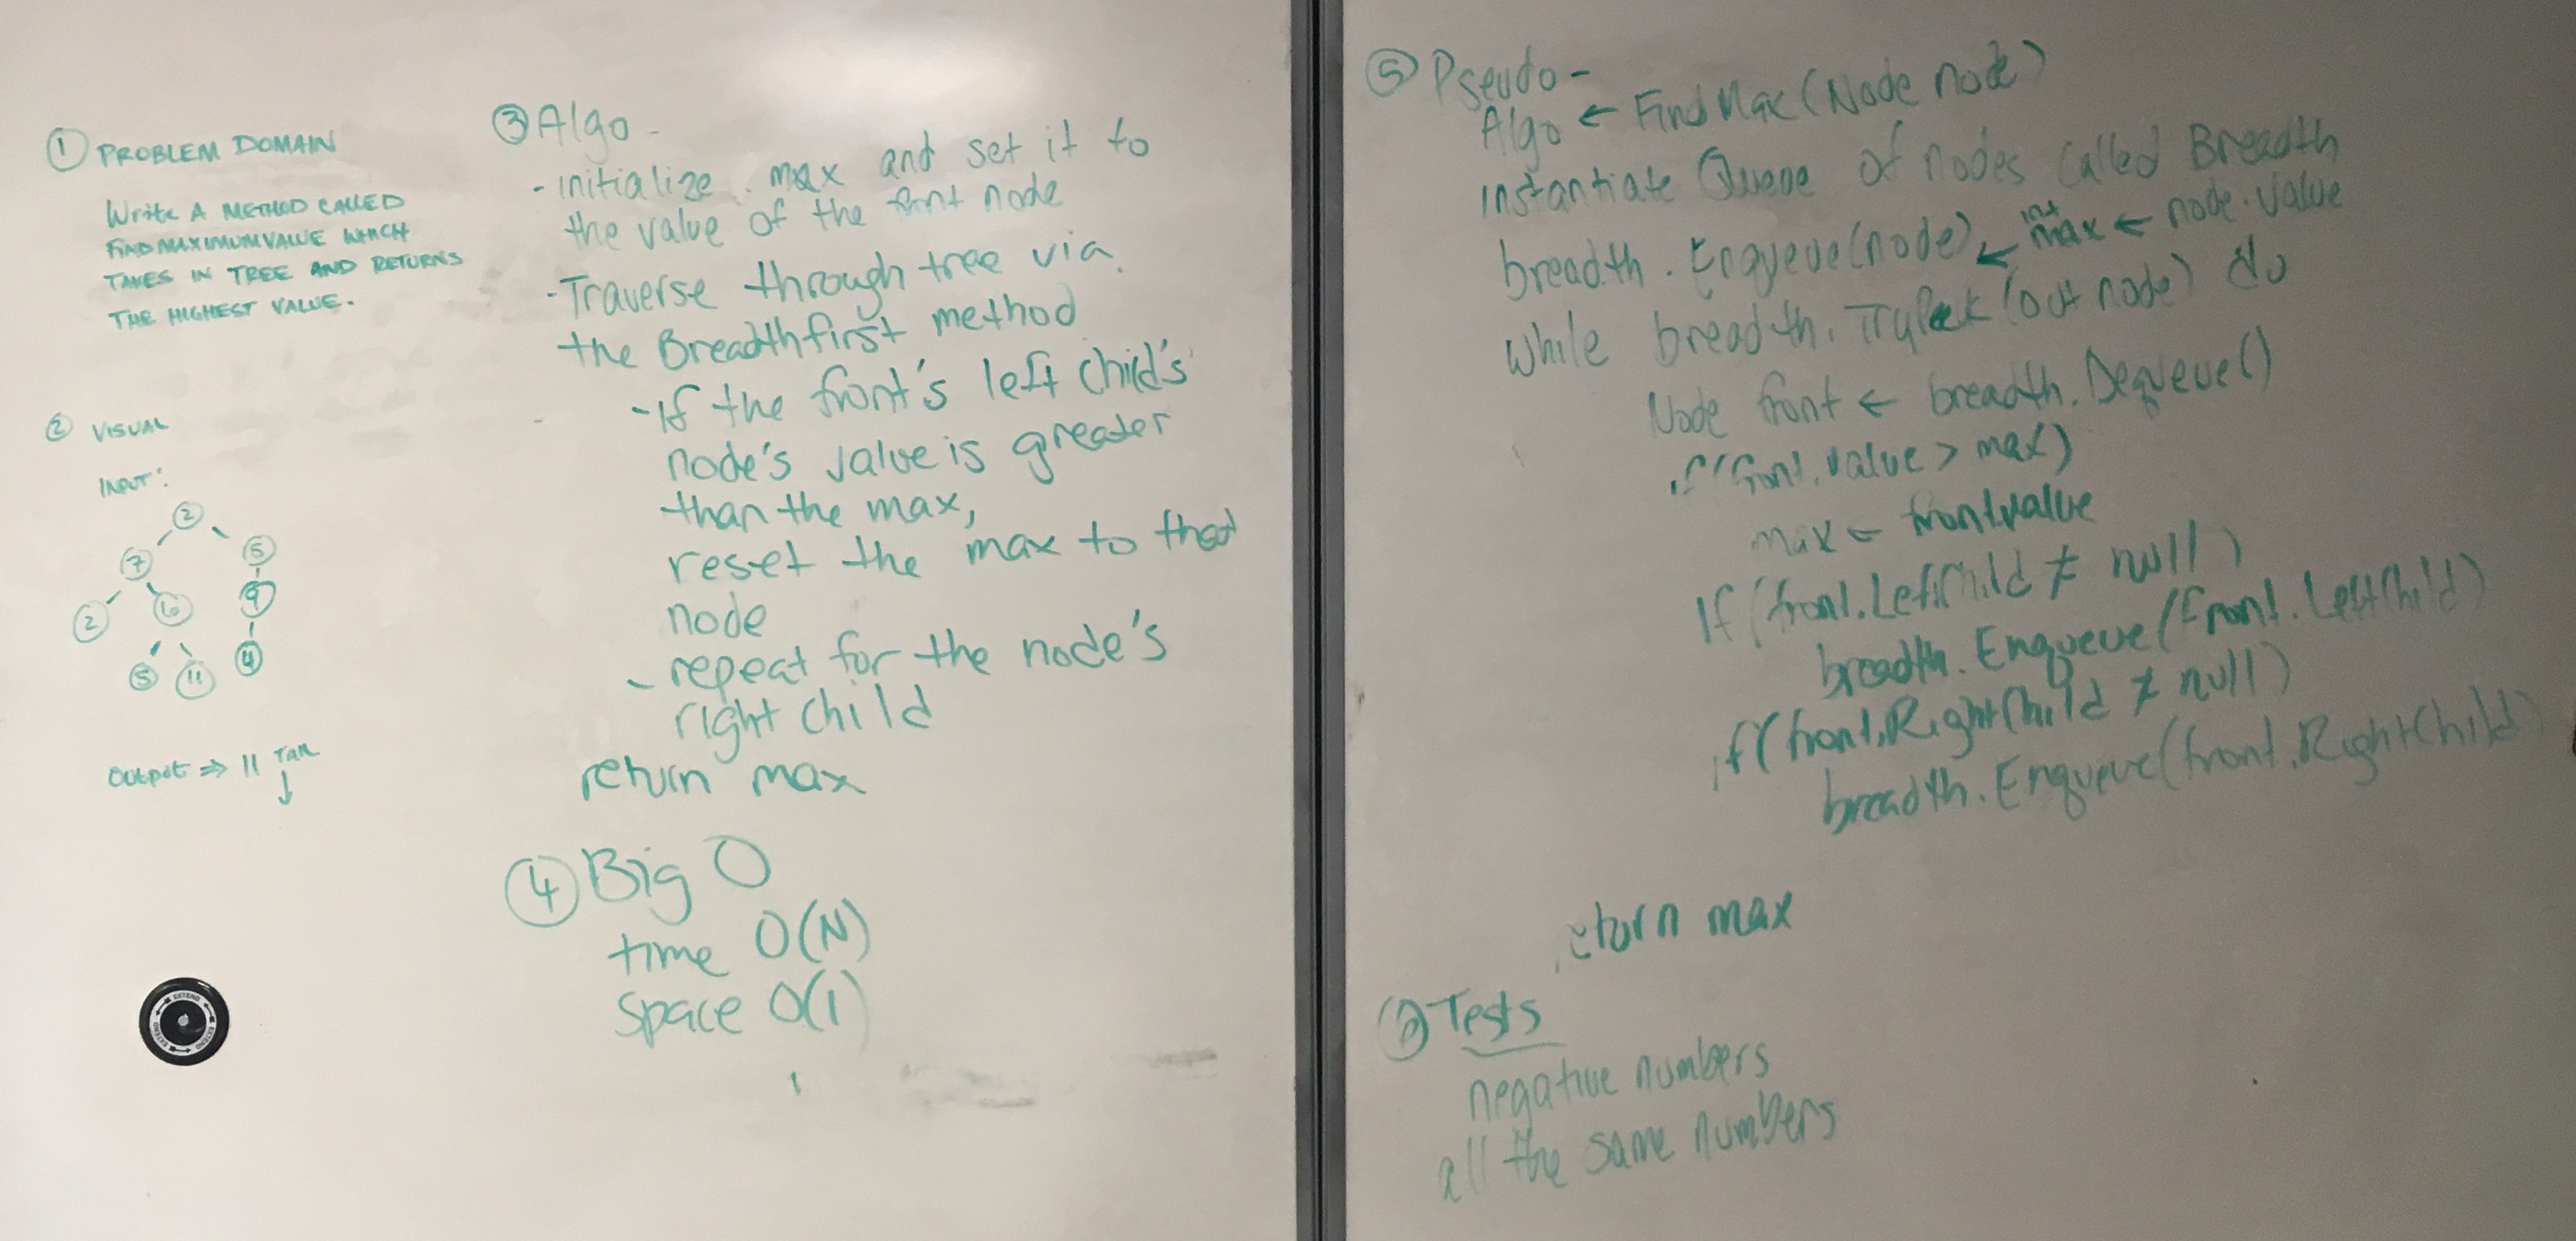 ① PROBLEM DOMAIN
WRITE A METHOD CALLED
FINDMAXIMUMVALUE WHICH
TAKES IN TREE AND RETURNS
THE HIGHEST VALUE.
② VISUAL
INPUT:
2
7 5
2 6 9
5 11 4
OUTPUT ⇒ 11
③ Algo -
- initialize max and set it to
the value of the front node
- Traverse through tree via
the Breadthfirst method
- If the front's left child's
node's value is greater
than the max,
reset the max to that
node
- repeat for the node's
right child
return max
④ Big O
time O(N)
space O(1)
⑤ Pseudo -
Algo ← FindMax (Node node)
instantiate Queue of nodes called Breadth
breadth.Enqueue(node) ↙ int max ← node.value
while breadth.TryPeek (out node) do
Node front ← breadth.Dequeue()
if (front.value > max)
max ← front.value
If (front.LeftChild ≠ null)
breadth.Enqueue(Front.LeftChild)
if (front.RightChild ≠ null)
breadth.Enqueue(front.RightChild)
return max
⑥ Tests
negative numbers
all the same numbers
EXTEND EXTEND EXTEND EXTEND